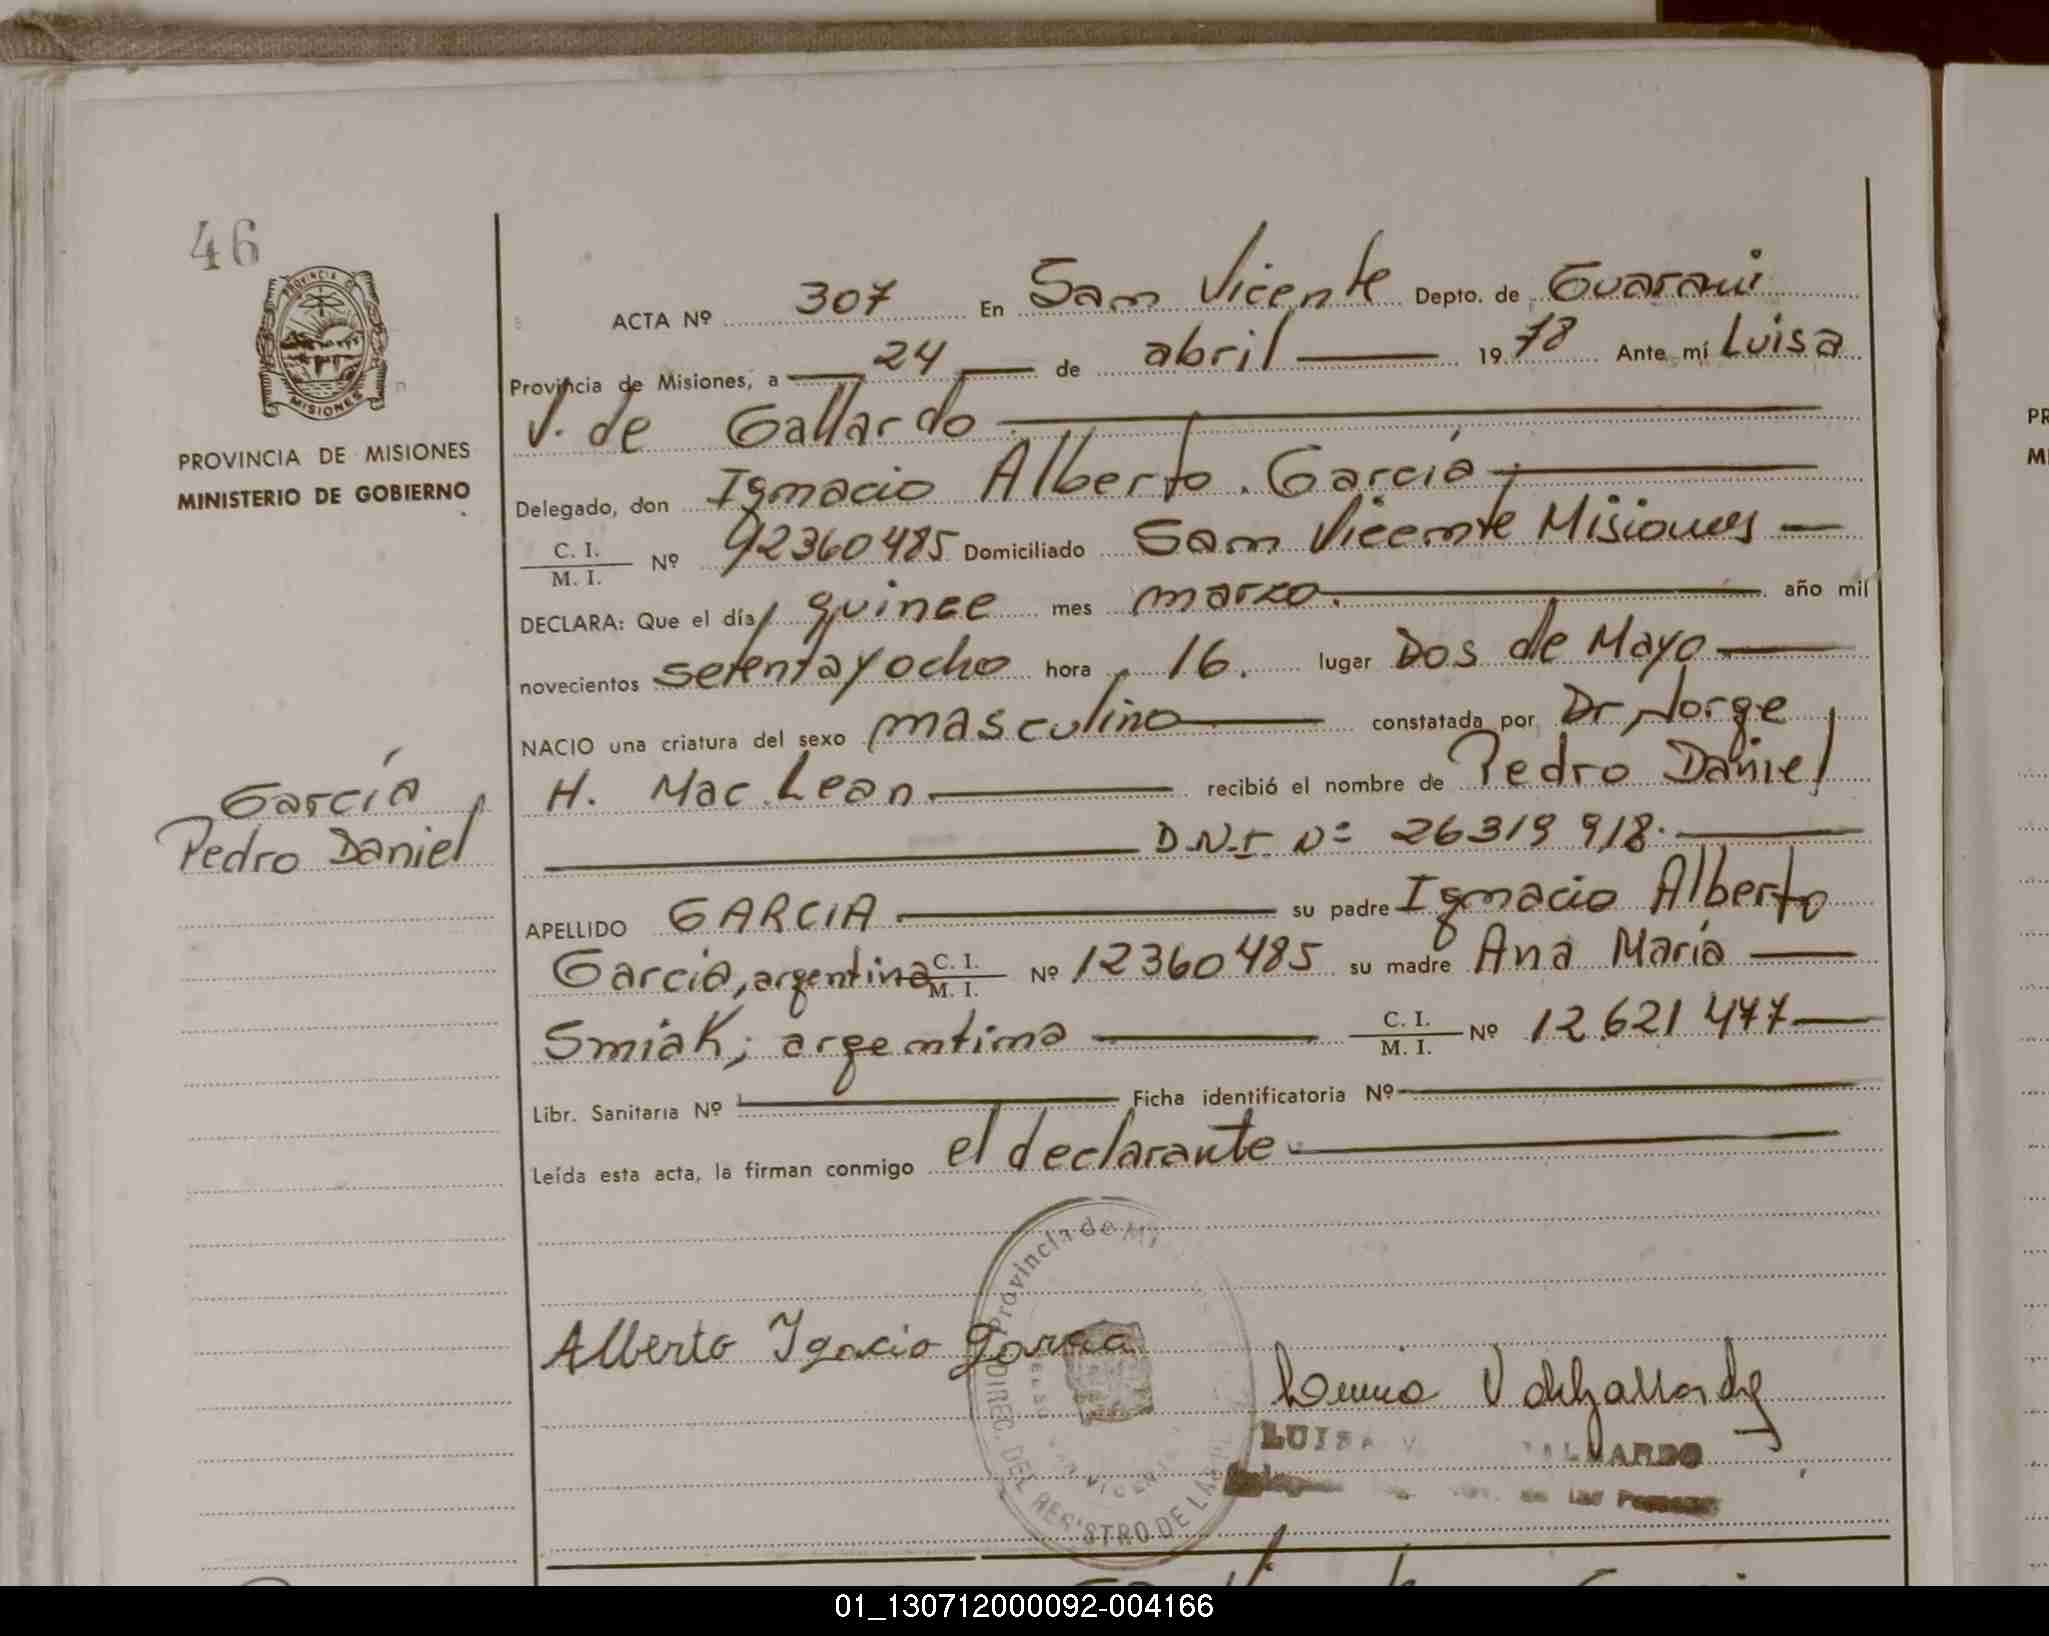 46
PROVINCIA DE
MISIONES
PROVINCIA DE MISIONES
MINISTERIO DE GOBIERNO
ACTA Nº 307 En San Vicente Depto. de Guarani
Provincia de Misiones, a 24 de abril 1978 Ante mí Luisa
V. de Gallardo
Delegado, don Ignacio Alberto Garcia
C. I. / M. I. Nº 92360485 Domiciliado San Vicente Misiones
DECLARA: Que el día quince mes marzo año mil
novecientos setenta y ocho hora 16. lugar Dos de Mayo
NACIO una criatura del sexo masculino constatada por Dr Jorge
H. Mac Lean recibió el nombre de Pedro Daniel
D.N.I. Nº 26319918.
García
Pedro Daniel
APELLIDO GARCIA su padre Ignacio Alberto
Garcia, argentino C. I. / M. I. Nº 12360485 su madre Ana María
Smiak; argentina C. I. / M. I. Nº 12.621 477
Libr. Sanitaria Nº Ficha identificatoria Nº
Leída esta acta, la firman conmigo el declarante
Provincia de Mi
DIREC. DEL REGISTRO DE LAS
VICENTE
Alberto Ignacio Garcia
LUISA V. GALLARDO
de las Personas
PR
M
01_130712000092-004166